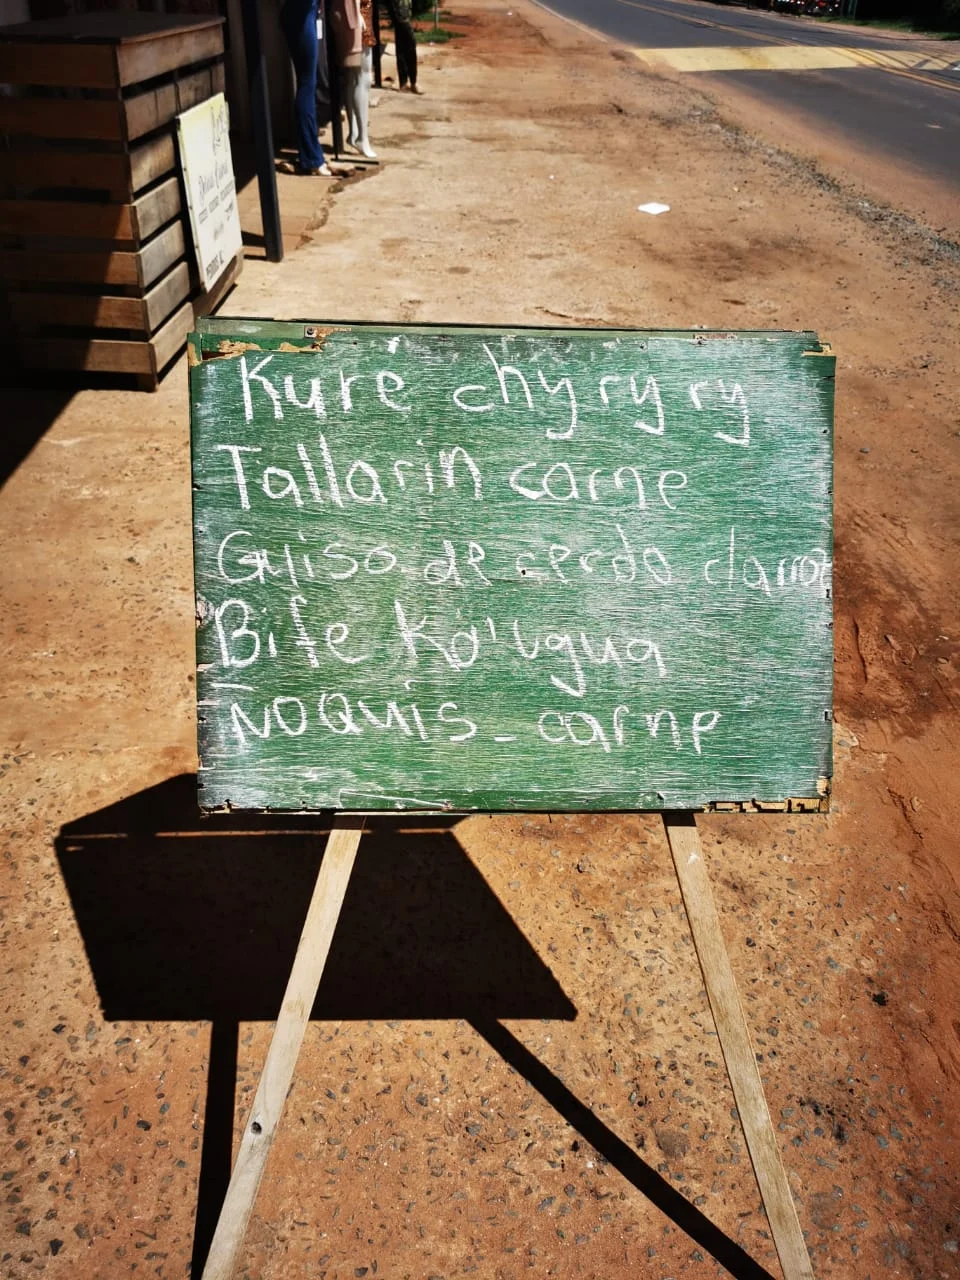 Kuré chyryry
Tallarin carne
Guiso de cerdo
Bife Ko'ygua
Ñoquis - carne